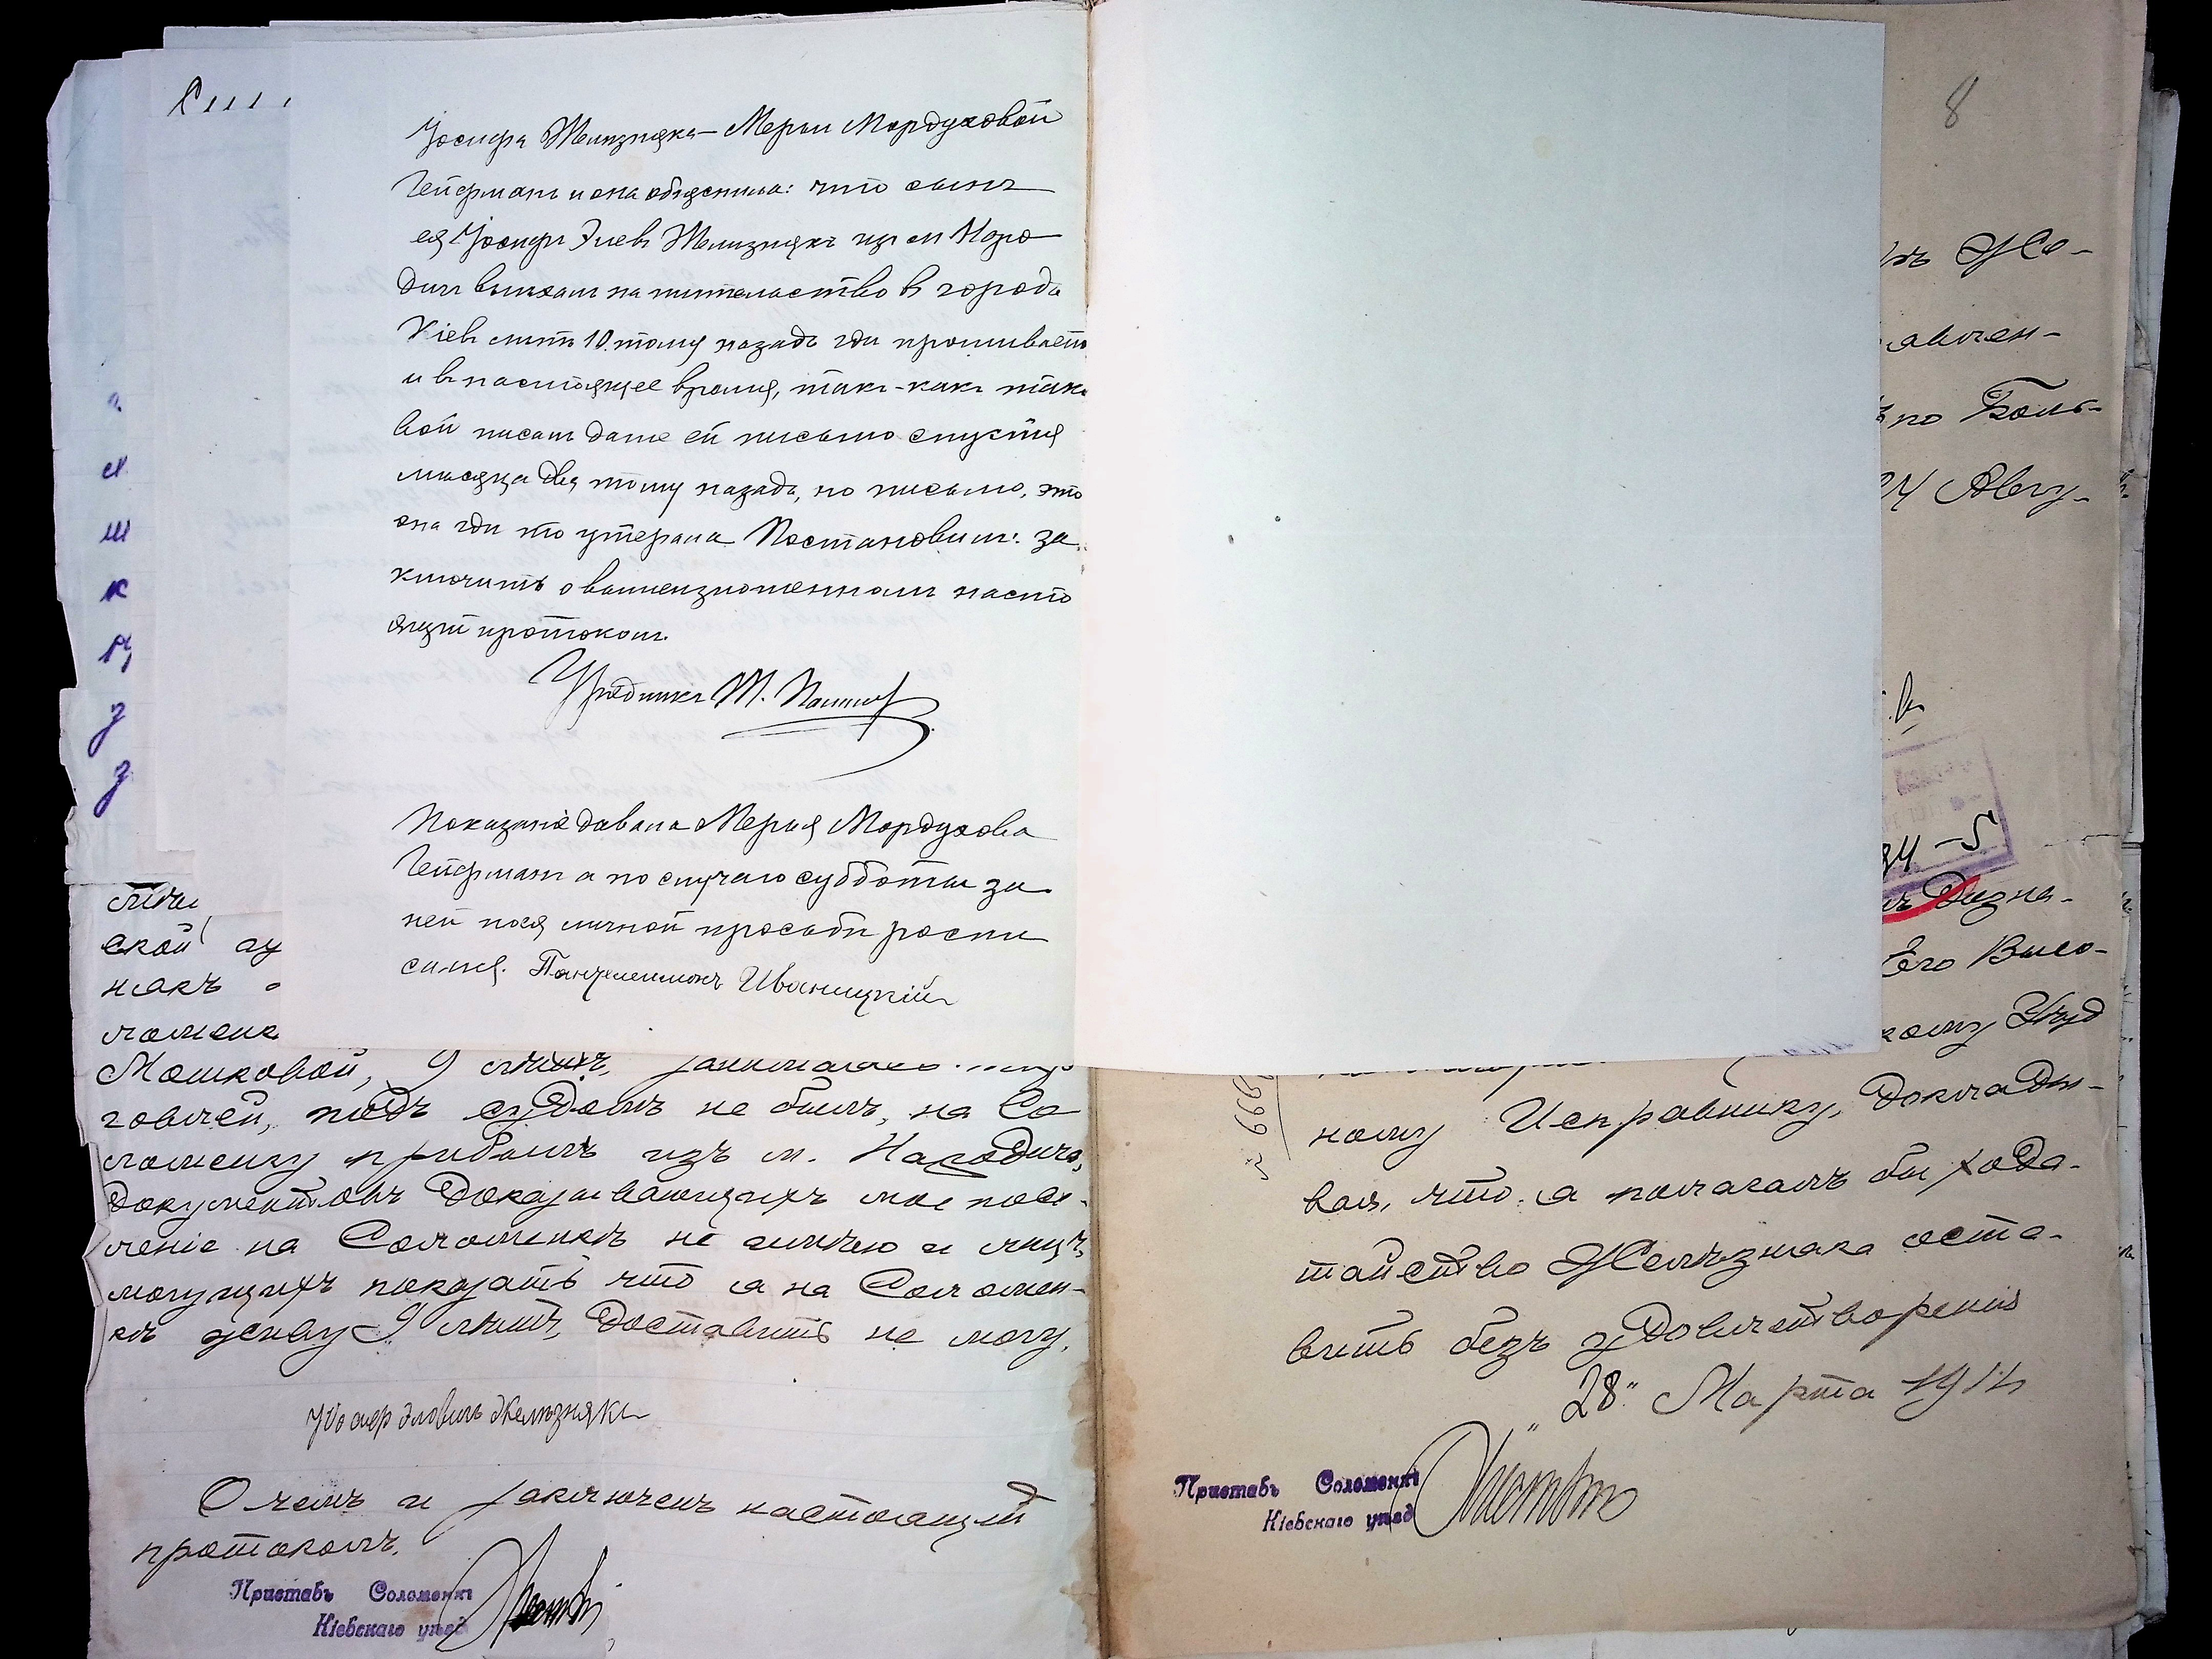 Іосифа Желизняка – Меріи Мордуховой
Гейфманъ и она обяснила: что сынъ
ея Іосифъ Элевъ Желизнякъ изъ м Наро
дичъ выихалъ на жительство въ города
Кіевъ литъ 10. тому назадъ гди проживаетъ
и въ настоящее время, такъ-какъ тако
вой писалъ даже ей письмо спустя
мисяца два тому назадъ, но письмо, это
она гди то утерала Постановилъ: за
ключить о вышеизложенномъ насто
ящій протоколъ.
Урядникъ
Показаніе давала Мерія Мордухова
Гейфманъ а по случаю субботы за
ней по ея личной просьби роспи
сался. Пантелеимонъ Иваницкій
ской су
някъ о
ломенк
Мошковой, 9 лѣтъ, занимаюсь
говлей, подъ судомъ не былъ, на Со
ломенку прибылъ изъ м. Народичъ,
документовъ доказывающихъ мое посе-
леніе на Соломенкѣ не имѣю и лицъ,
могущихъ показать что я на Соломен-
кѣ живу 9 лѣтъ, доставить не могу.
Іосиф Эловичъ Желѣзнякъ
О чемъ и заключенъ настоящій
протоколъ.
Приставъ Соломенки
Кіевскаго уѣзд
8
по Боль-
24 Авгу-
84 – 5
Дозна-
Его Высо-
Уѣзд
ному Исправнику, доклады-
вая, что я полагалъ бы хода-
тайство Желѣзняка оста-
вить безъ удовлетворенія
"28" Марта 1914
Приставъ Соломенки
Кіевскаго уѣзд